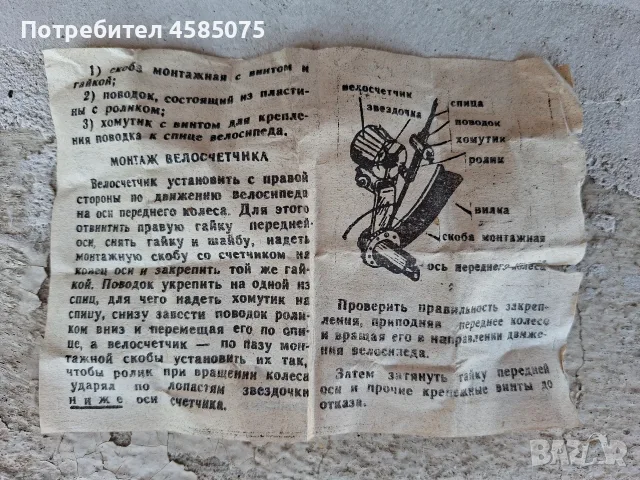 Потребител 4585075
1) скоба монтажная с винтом и
гайкой;
2) поводок, состоящий из пласти-
ны с роликом;
3) хомутик с винтом для крепле-
ния поводка к спице велосипеда.
МОНТАЖ ВЕЛОСЧЕТЧИКА
Велосчетчик установить с правой
стороны по движению велосипеда
на оси переднего колеса. Для этого
отвинтить правую гайку передней
оси, снять гайку и шайбу, надеть
монтажную скобу со счетчиком на
конец оси и закрепить той же гай-
кой. Поводок укрепить на одной из
спиц, для чего надеть хомутик на
спицу, снизу завести поводок роли-
ком вниз и перемещая его по спи-
це, а велосчетчик — по пазу мон-
тажной скобы установить их так,
чтобы ролик при вращении колеса
ударял по лопастям звездочки
ниже оси счетчика.
велосчетчик
звездочка
спица
поводок
хомутик
ролик
вилка
скоба монтажная
ось переднего колеса
Проверить правильность закреп-
ления, приподняв переднее колесо
и вращая его в направлении движе-
ния велосипеда.
Затем затянуть гайку передней
оси и прочие крепежные винты до
отказа.
BAZAR